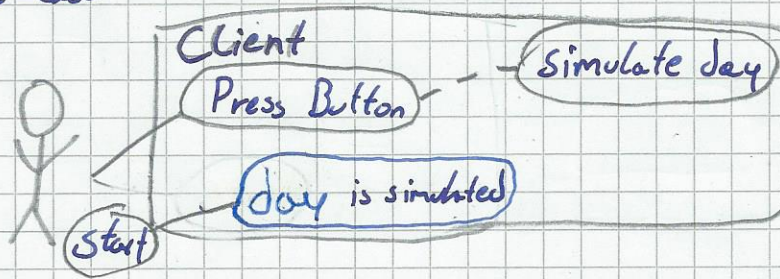 Client
Press Button
simulate day
day is simulated
start